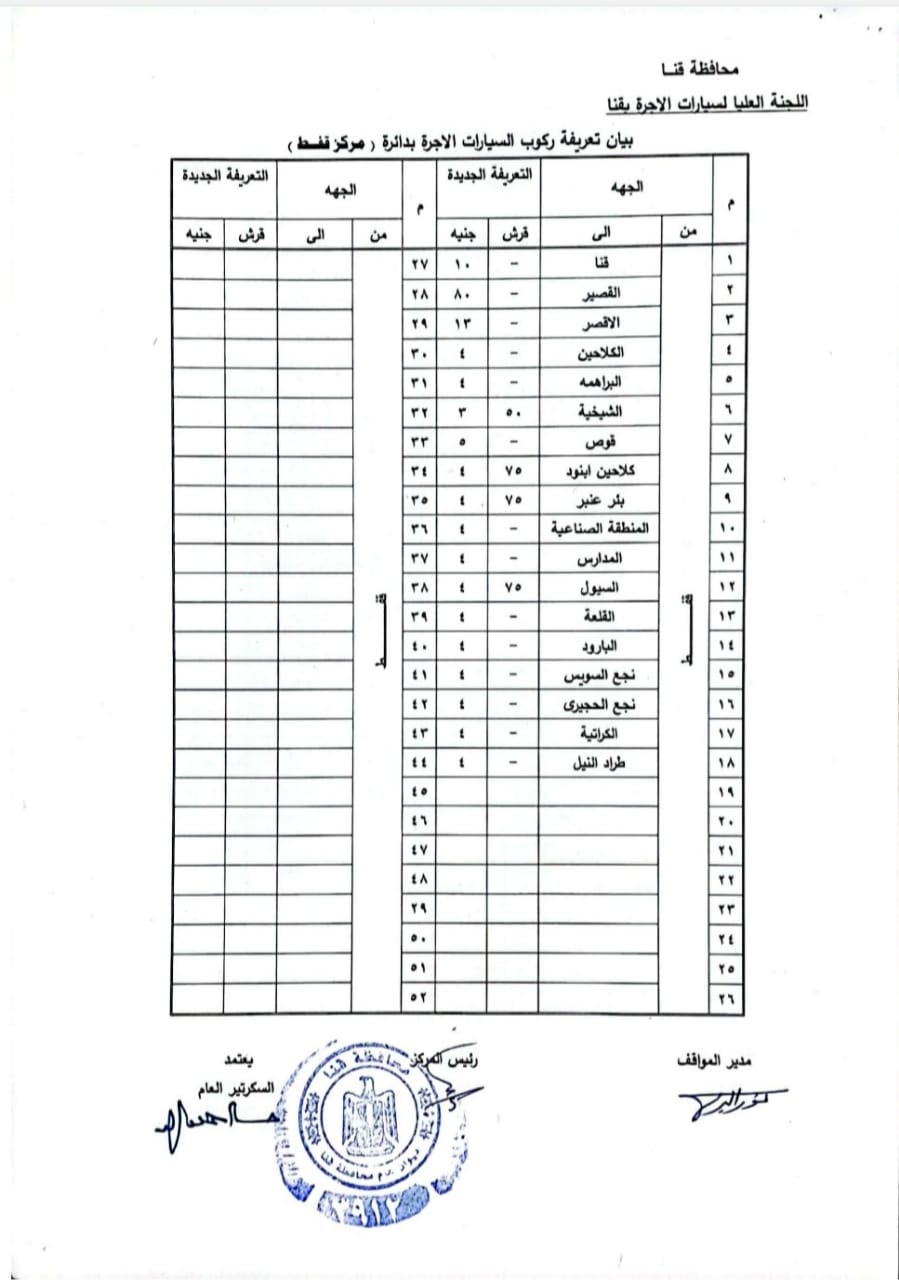 محافظة قنا
اللجنة العليا لسيارات الاجرة بقنا
بيان تعريفة ركوب السيارات الاجرة بدائرة ( مركز قفط )
م الجهه التعريفة الجديدة م الجهه التعريفة الجديدة
من الى قرش جنيه من الى قرش جنيه
قفـــط قفـــط
١ قنا - ١٠ ٢٧
٢ القصير - ٨٠ ٢٨
٣ الاقصر - ١٣ ٢٩
٤ الكلاحين - ٤ ٣٠
٥ البراهمه - ٤ ٣١
٦ الشيخية ٥٠ ٣ ٣٢
٧ قوص - ٥ ٣٣
٨ كلاحين ابنود ٧٥ ٤ ٣٤
٩ بئر عنبر ٧٥ ٤ ٣٥
١٠ المنطقة الصناعية - ٤ ٣٦
١١ المدارس - ٤ ٣٧
١٢ السيول ٧٥ ٤ ٣٨
١٣ القلعة - ٤ ٣٩
١٤ البارود - ٤ ٤٠
١٥ نجع السويس - ٤ ٤١
١٦ نجع الحجيرى - ٤ ٤٢
١٧ الكراتية - ٤ ٤٣
١٨ طراد النيل - ٤ ٤٤
١٩ ٤٥
٢٠ ٤٦
٢١ ٤٧
٢٢ ٤٨
٢٣ ٢٩
٢٤ ٥٠
٢٥ ٥١
٢٦ ٥٢
مدير المواقف رئيس المركز يعتمد
السكرتير العام
محافظة قنا
ديوان عام محافظة قنا
٣٩١٢